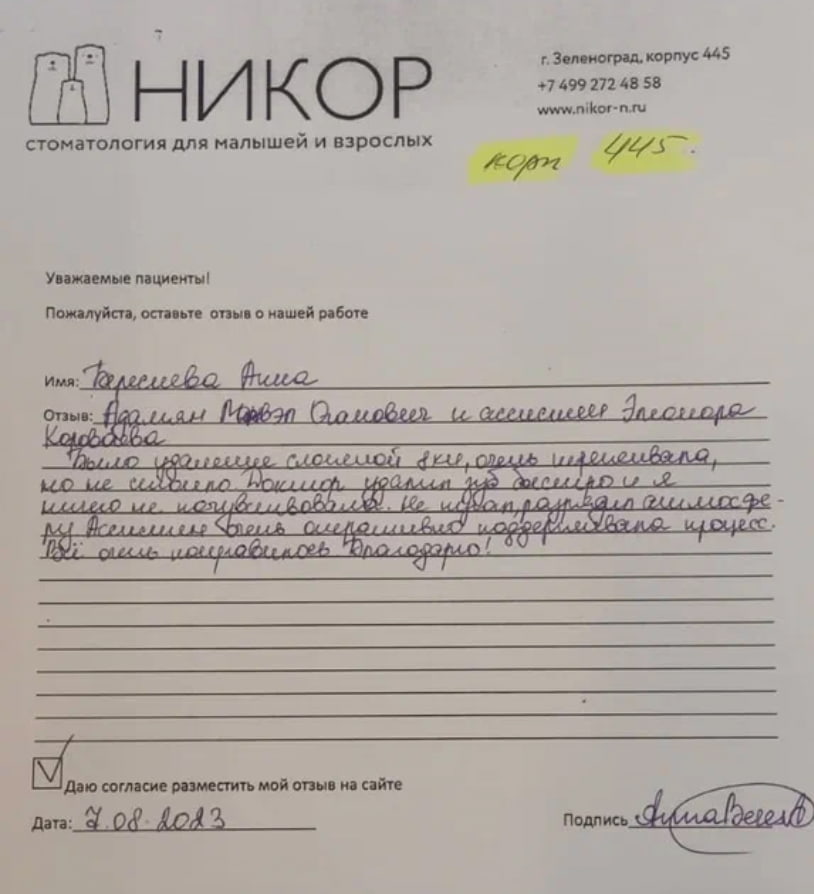 НИКОР
стоматология для малышей и взрослых
г. Зеленоград, корпус 445
+7 499 272 48 58
www.nikor-n.ru
корп 445.
Уважаемые пациенты!
Пожалуйста, оставьте отзыв о нашей работе
Имя: Анна
Отзыв: Адамян Оганович и ассистент Элеонора
Короваева
Было удаление сложной 8ки, очень переживала,
но не сильно. Доктор удалил зуб быстро и я
ничего не почувствовала. Не пугал, разрядил атмосфе-
ру. Ассистент очень оперативно поддерживала процесс.
Всё очень понравилось Благодарю!
Даю согласие разместить мой отзыв на сайте
Дата: 7.08.2023
Подпись Анна